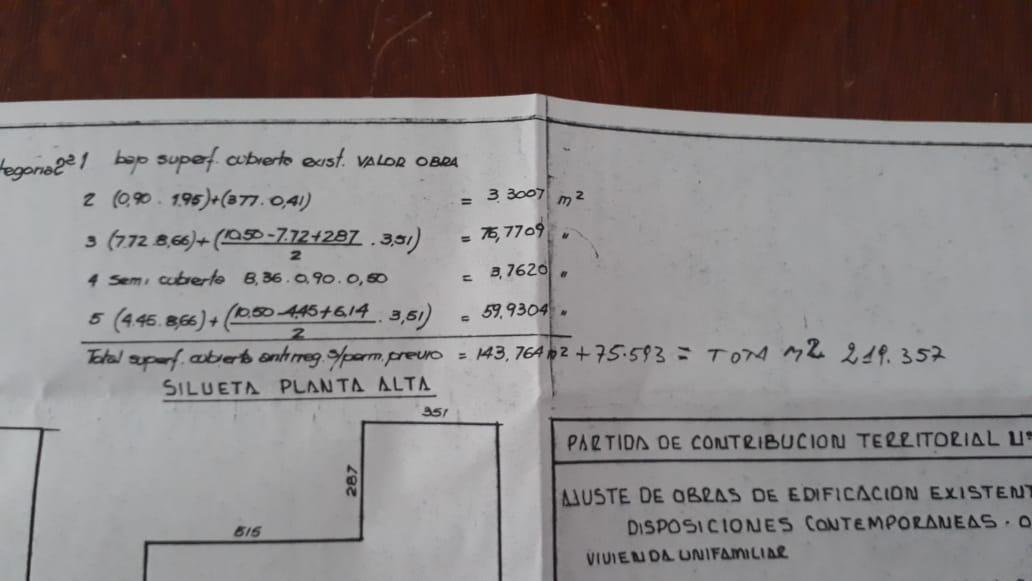 tegoria "C" 21 bajo superf. cubierta exist. VALOR OBRA
2 (0,90 . 1.95)+(377. 0,41) = 3.3007 m2
3 (7.72.8,66)+(10.50-7.72+2.87/2 . 3,51) = 76,7709 "
4 Semi cubierto 8,36.0,90.0,50 = 3,7620 "
5 (4.45.8,66)+(10.50-4.45+6.14/2 . 3,51) = 59,9304 "
Total superf. cubierta antirreg. s/perm. previo = 143,764 m2 + 75.593 = TOTA M2 219.357
SILUETA PLANTA ALTA
351
287
515
PARTIDA DE CONTRIBUCION TERRITORIAL Nº
AJUSTE DE OBRAS DE EDIFICACION EXISTENT
DISPOSICIONES CONTEMPORANEAS . O
VIVIENDA UNIFAMILIAR